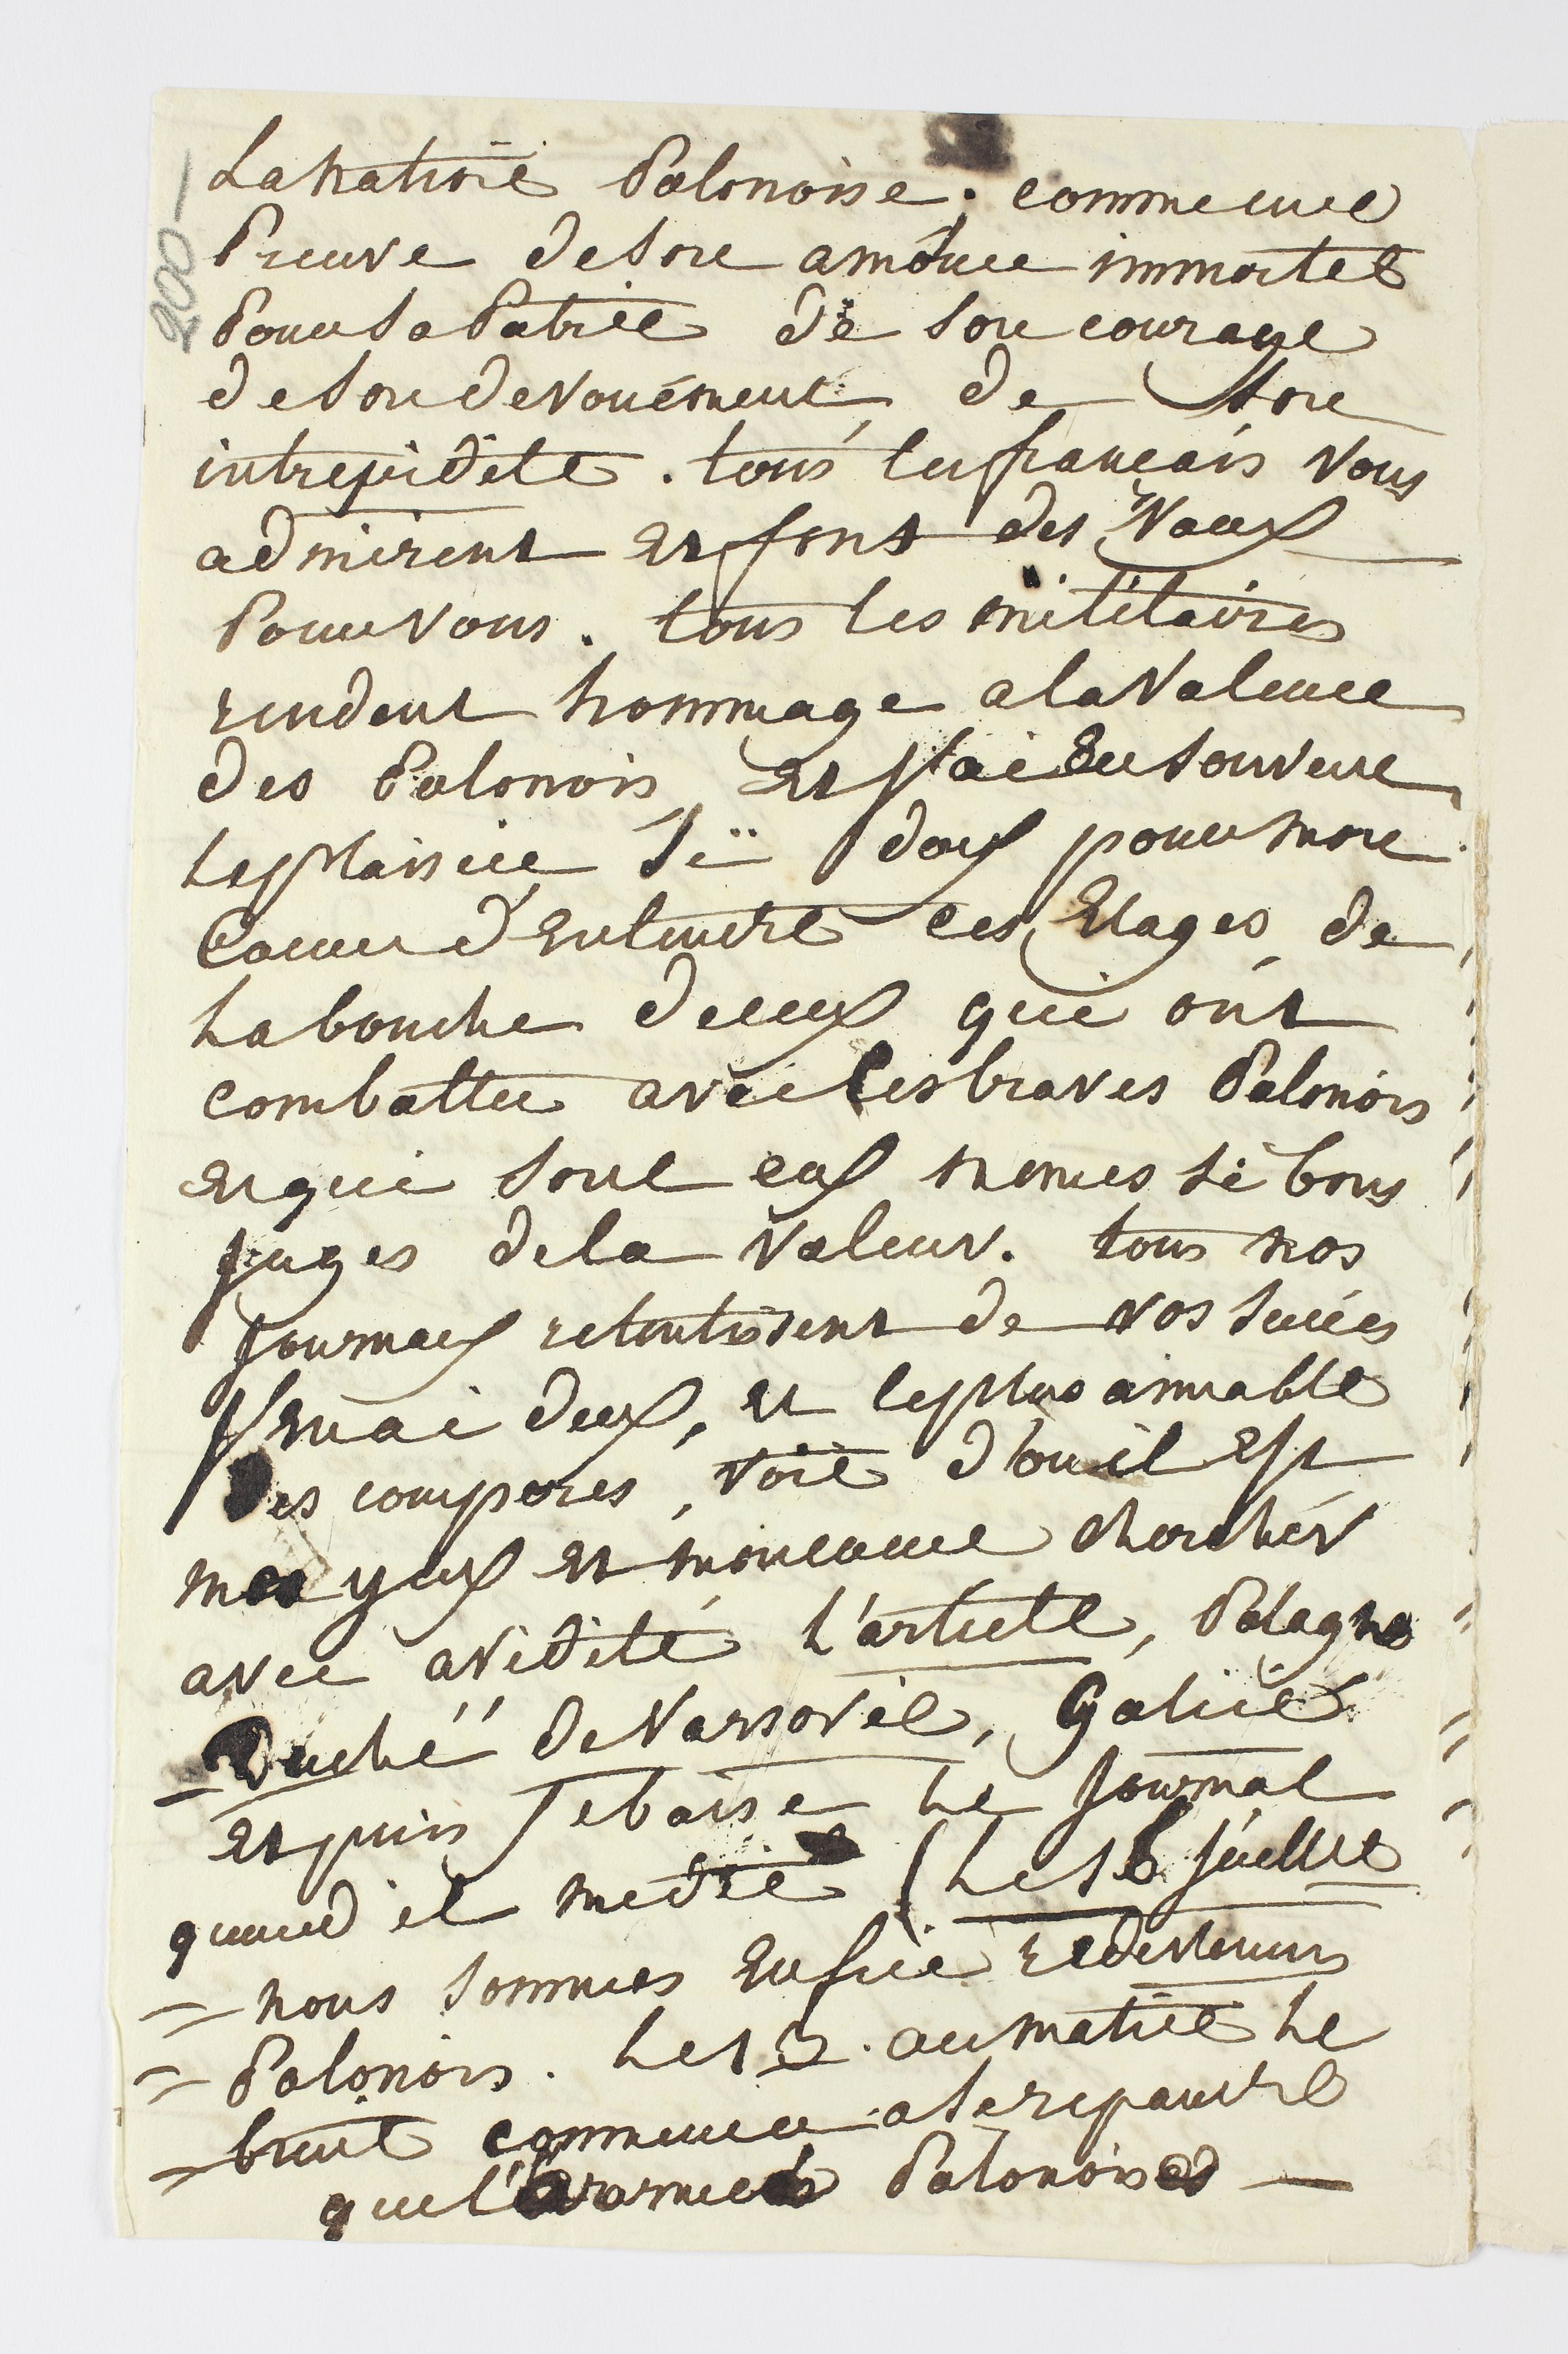 200 —
La nation Polonoise ; comme une
Preuve de son amour immortel
Pour sa Patrie de son courage
de son devouément, de son
intrepidité . tous les francais vous
admirent et font des Vœux
Pour vous . tous les militaires
rendent hommage a la Valeur
des Polonois, et j'ai eu souvent
Le plaisir si doux pour mon
Coeur d'entendre ces Eloges, de
La bouche de ceux qui ont
combattu avec les braves Polonois
et qui sont eux memes si bons
juges de la Valeur. tous nos
Journaux retentissent de vos succés
J'en ai deux, et le plus aimable
Des comperes, voit d'ou il est
mes yeux et mon coeur cherchér
avec avidité L'article, Pologne
Duché de Varsovie, Galicie
et puis Je baise Le Journal
quand il me dit (Le 16 Juillet
= nous sommes enfin redevenus
= Polonois . Le 13 . au matin Le
= bruit commenca a se repandre
que l'armée Polonoise —